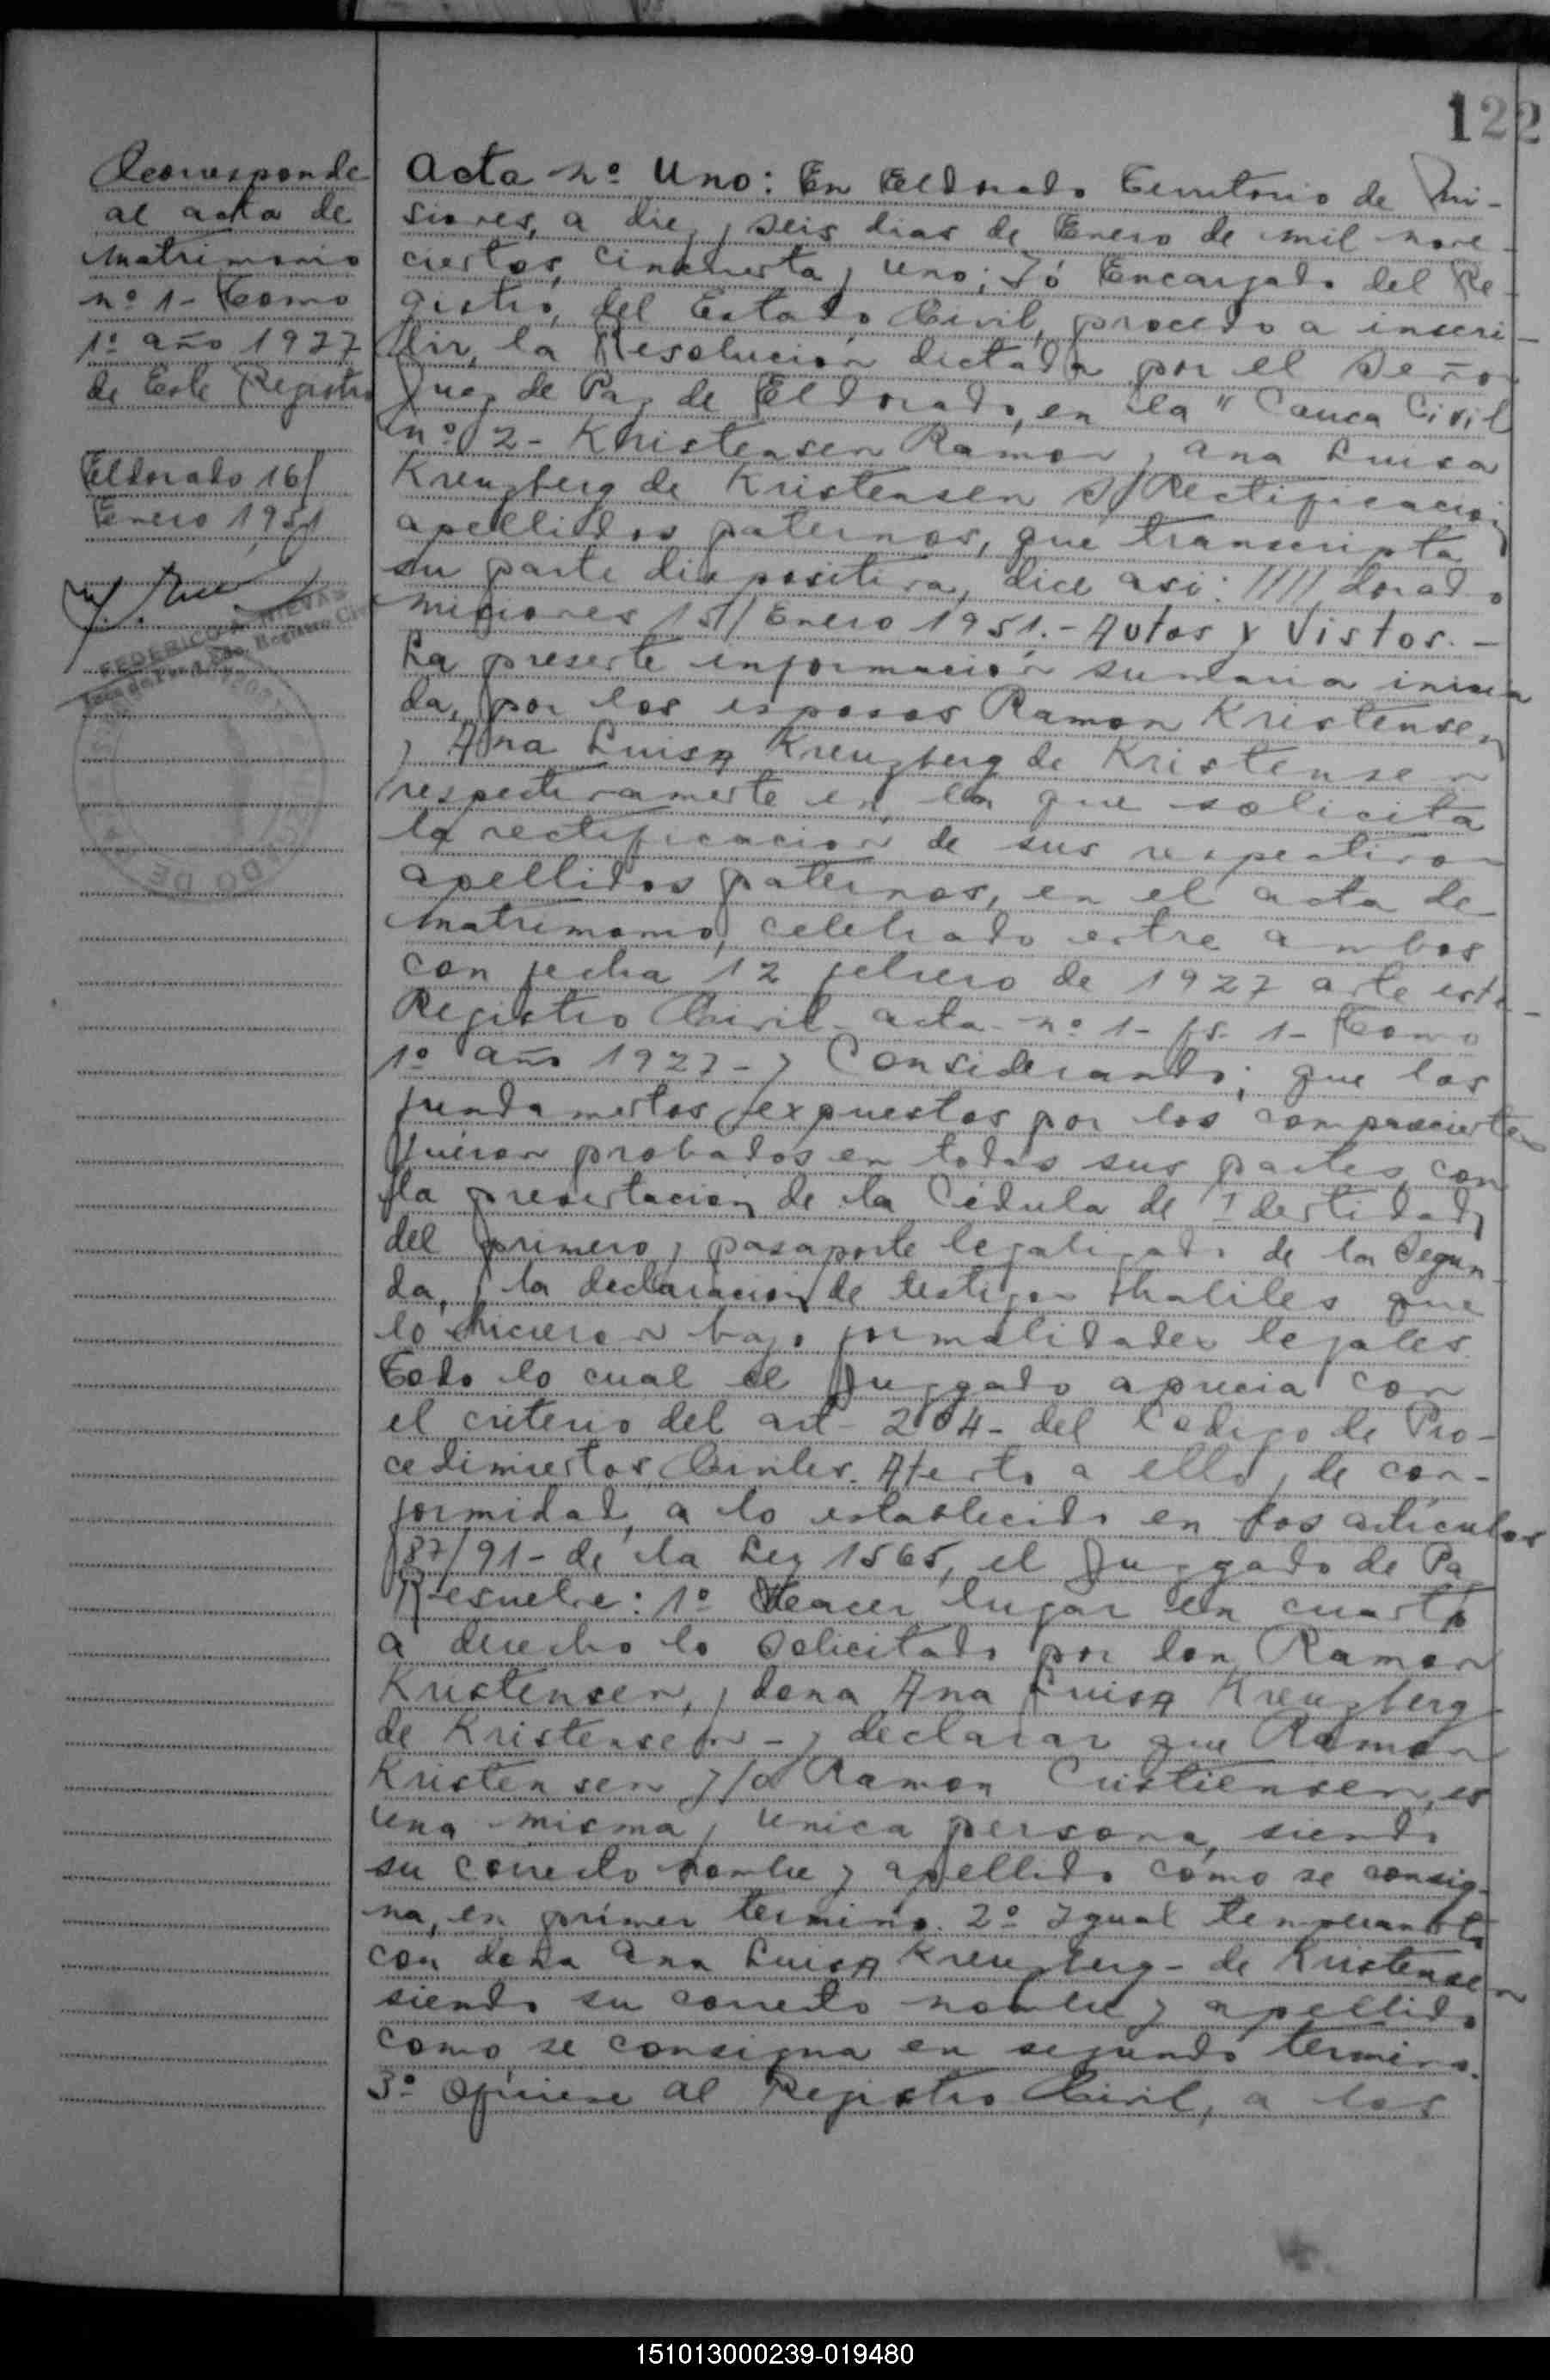 122
Corresponde
al acta de
Matrimonio
nº 1- Tomo
1º año 1927
de Este Registro
Eldorado 16/
Enero 1,951
FEDERICO A. NIEVAS
Acta nº Uno: En Eldorado Territorio de Mi-
siones, a diez y seis dias de Enero de mil nove-
cientos, cincuenta y uno; Yó Encargado del Re-
gistro, del Estado Civil, procedo a inscri-
bir, la Resolución dictada por el Señor
Juez de Paz de Eldorado, en la "Causa Civil
nº 2- Khistensen Ramon y Ana Luisa
Kreuzberg de Kristensen S/ Rectificación
apellidos paternos, que transcripta
su parte dispositiva, dice asi: //// dorado
Misiones 15/ Enero 1951.- Autos y Vistos.-
La presente información sumaria inicia
da, por los esposos Ramon Kristensen
y Ana Luisa Kreuzberg de Kristensen
respectivamente en la que solicita
la rectificacion de sus respectivos
apellidos paternos, en el acta de
Matrimonio, celebrado entre ambos
con fecha 12 febrero de 1927 ante este
Registro Civil- acta- nº 1- fs. 1- Tomo
1º año 1927- y Considerando; que los
fundamentos expuestos por los comparecientes
fueron probados en todas sus partes, con
la presentación de la Cédula de Identidad,
del primero y pasaporte legalizado de la Segun-
da, y la declaración de testigos habiles que
lo hicieron bajo formalidades legales
Todo lo cual el Juzgado aprecia con
el criterio del art- 204- del Codigo de Pro-
cedimientos Civiles. Atento a ello y de con-
formidad, a lo establecido en los articulos
87/91- de la Ley 1565, el Juzgado de Paz
Resuelve: 1º Hacer lugar en cuanto
a derecho lo Solicitado por don Ramon
Kristensen, y dona Ana Luisa Kreuzberg
de Kristensen- y declarar que Ramon
Kristensen y/o Ramon Cristiensen, es
una misma y unica persona, siendo
su correcto nombre y apellido como se consig-
na, en primer termino. 2º Igual temperamento
con doña Ana Luisa Kreuzberg- de Kristensen
siendo su correcto nombre y apellido
como se consigna en segundo termino.
3º Ofíciese al Registro Civil, a los
151013000239-019480